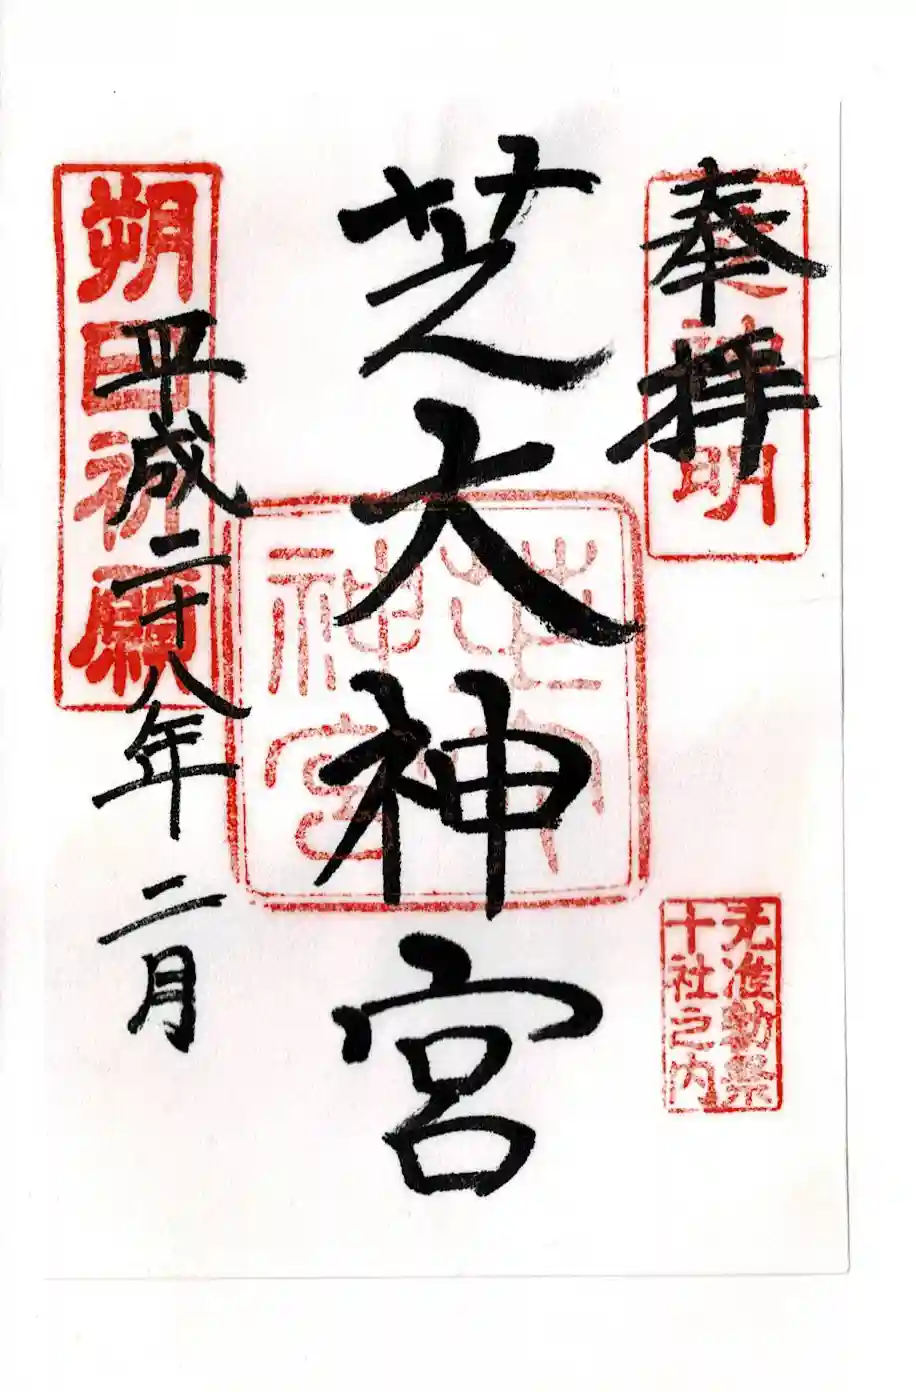 奉拝
芝大神宮
平成二十八年二月
朔日祈願
芝大神宮
准勅祭
十社之内